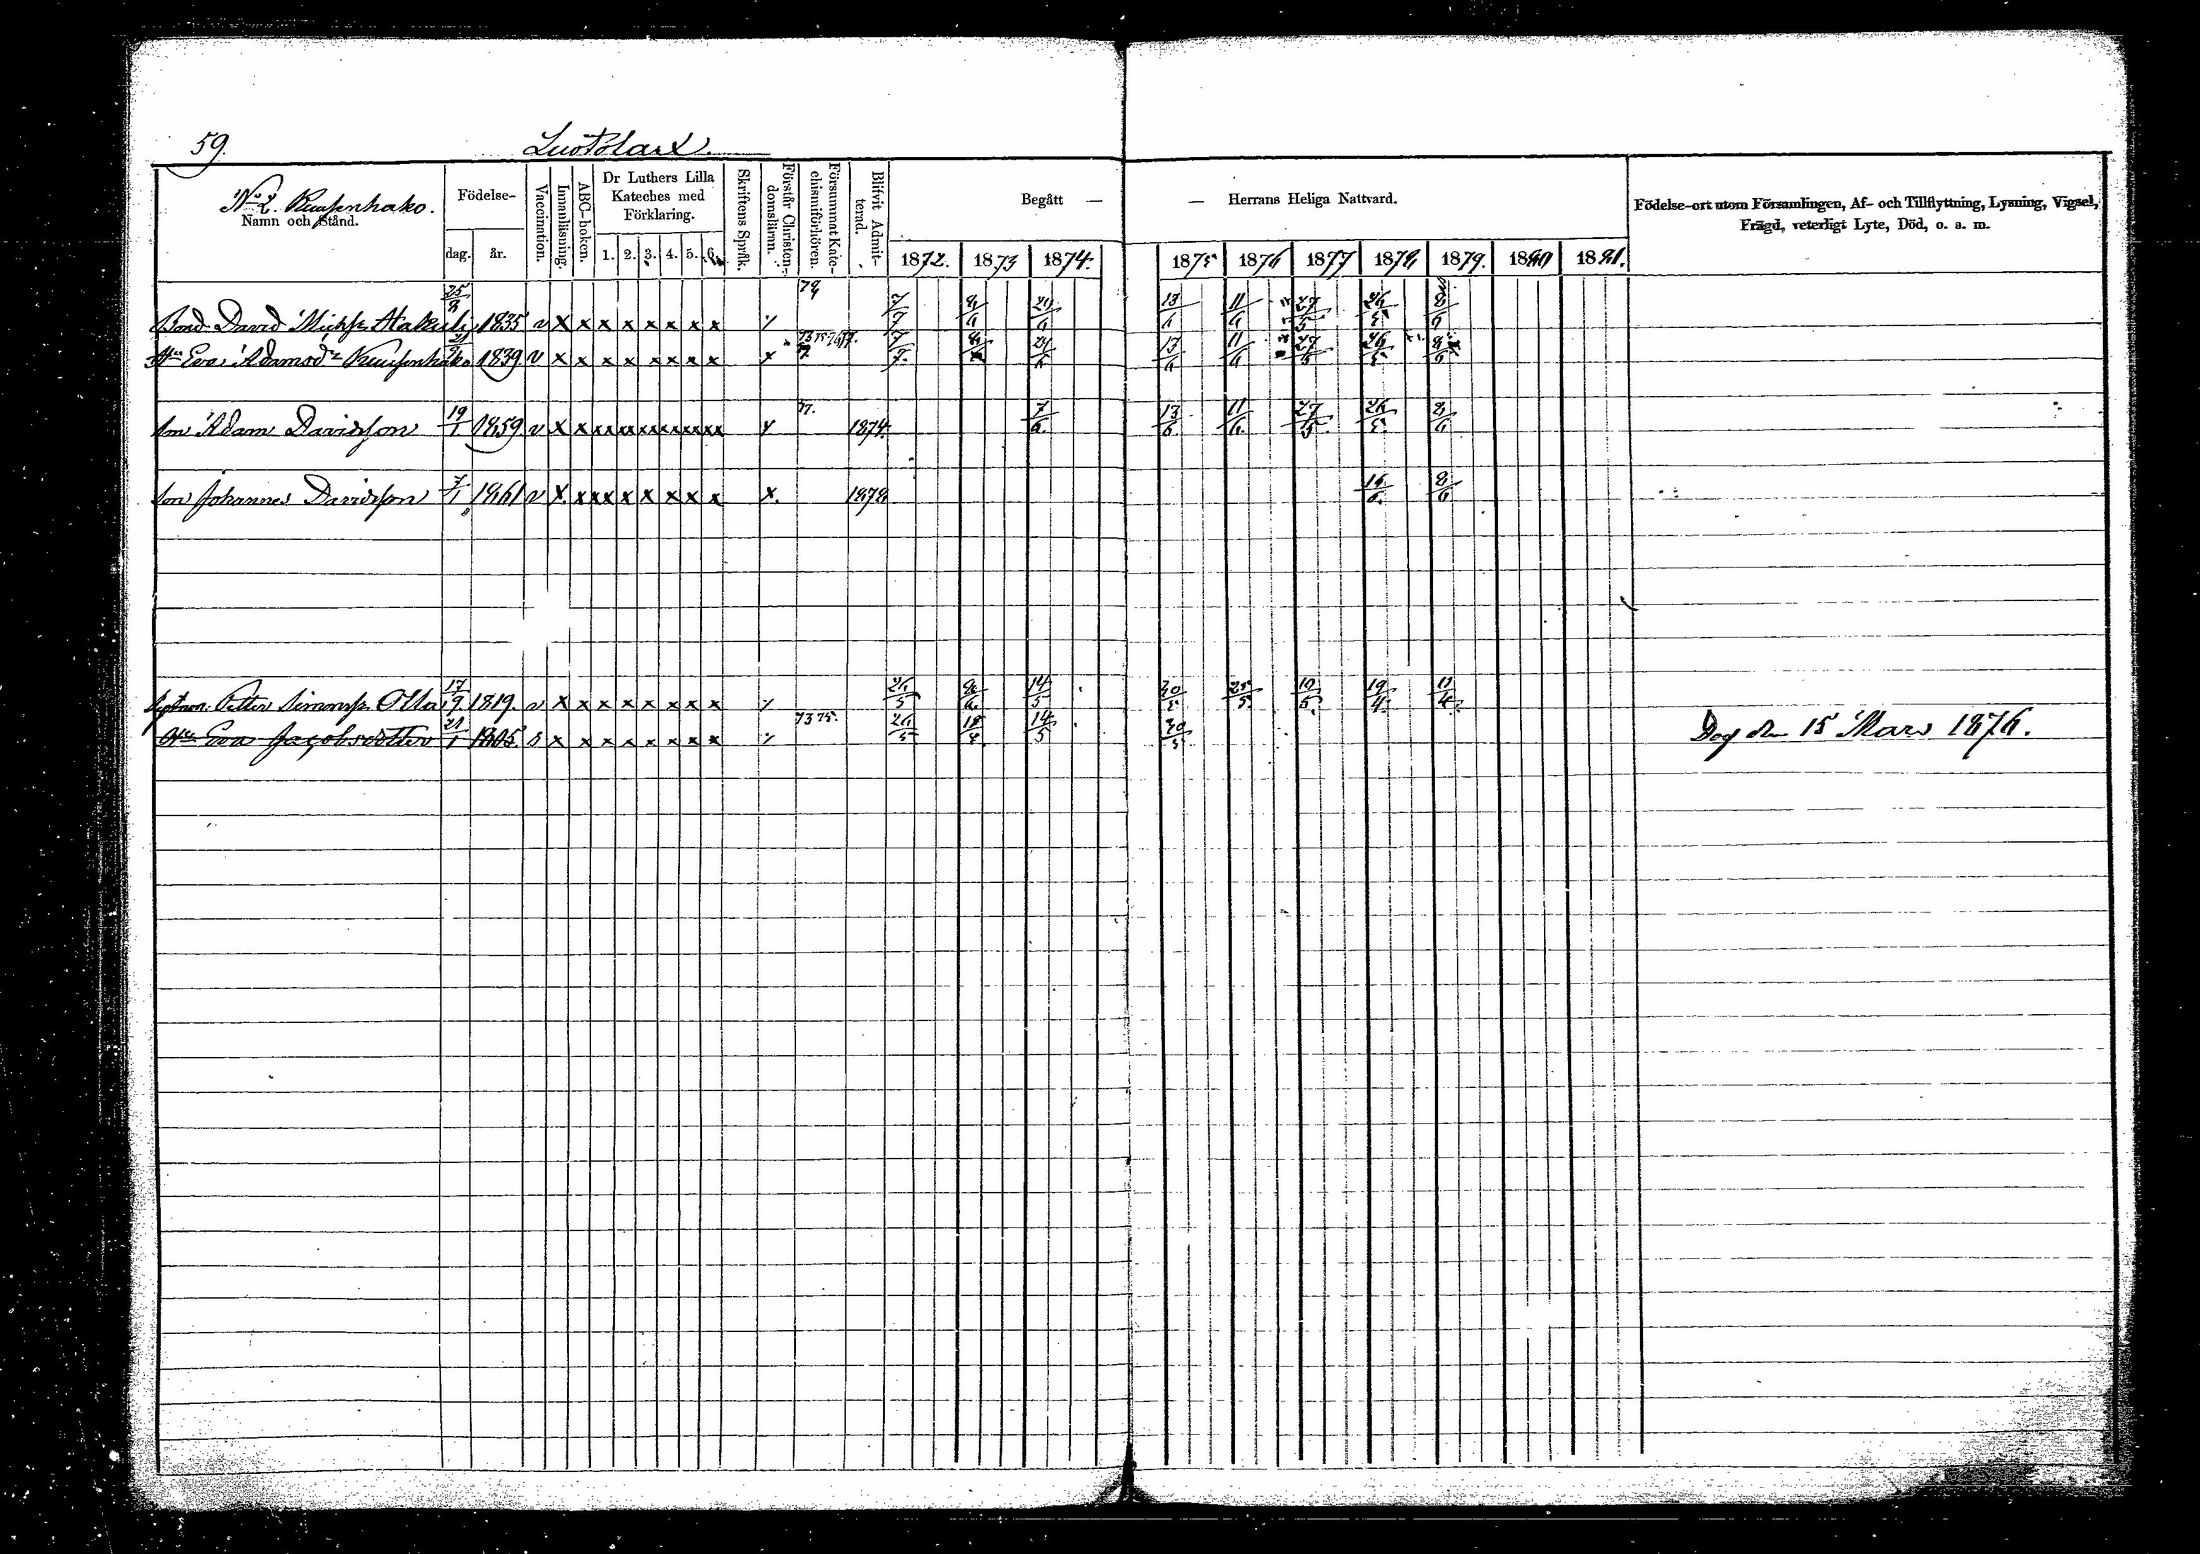 59.
Luotolax.
No 2. Ruissenhako.
Namn och Stånd.
Födelse-
dag.
år.
Vaccination.
Innanläsning.
ABC-boken.
Dr Luthers Lilla
Kateches med
Förklaring.
1. 2. 3. 4. 5. 6.
Skriftens Språk.
Förstår Christendomsläran.
Försummat Katechismiförhören.
Blifvit Admitterad.
Begått —
— Herrans Heliga Nattvard.
1872. 1873 1874. 1875 1876 1877 1878 1879. 1880 1881.
Födelse-ort utom Församlingen, Af- och Tillflyttning, Lysning, Vigsel,
Frägd, veterligt Lyte, Död, o. a. m.
Bond. David Michss. 25/8 1835 v x x x x x x x x 79 7/7 8/6 13/6 11/6 27/5 26/5 8/6
Eva Adamsdr Ruissenhako 1839. v x x x x x x x x x 73 75 76 77. 7/7 13/6 11/6 27/5 26/5 8/6
son Adam Davidsson 19/1 1859. v x x xx xx xx xx xx xx 77. 1874. 7/6 13/6 11/6 27/5 26/5 8/6
son Johannes Davidsson 7/1 1861 v x x xx x x x x x x. 1878 16/6 8/6
Petter Simonss. Olla 17/9 1819. v x x x x x x x x 26/5 8/6 14/5 30/5 25/5 10/5 19/4 11/4
Eva Jacobsdotter 21/1 1805 x x x x x x x x 73 75. 26/5 14/5 30/5 Dog den 15 Mars 1876.